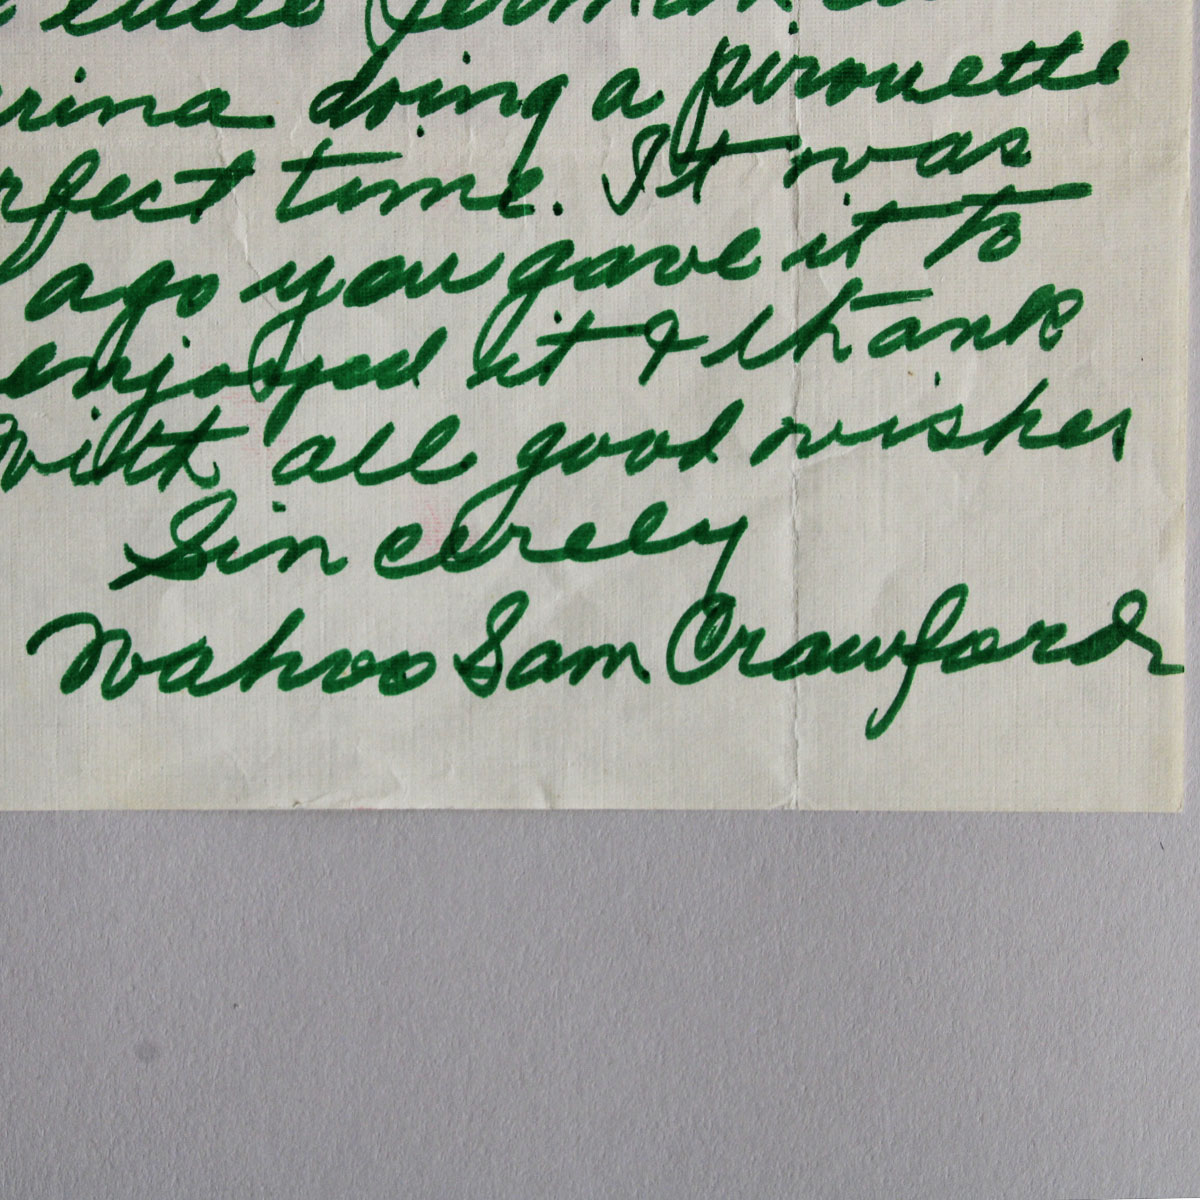 doing a pirouette
time. It was
ago you gave it to
enjoyed it & thank
With all good wishes
Sincerely
Wahoo Sam Crawford